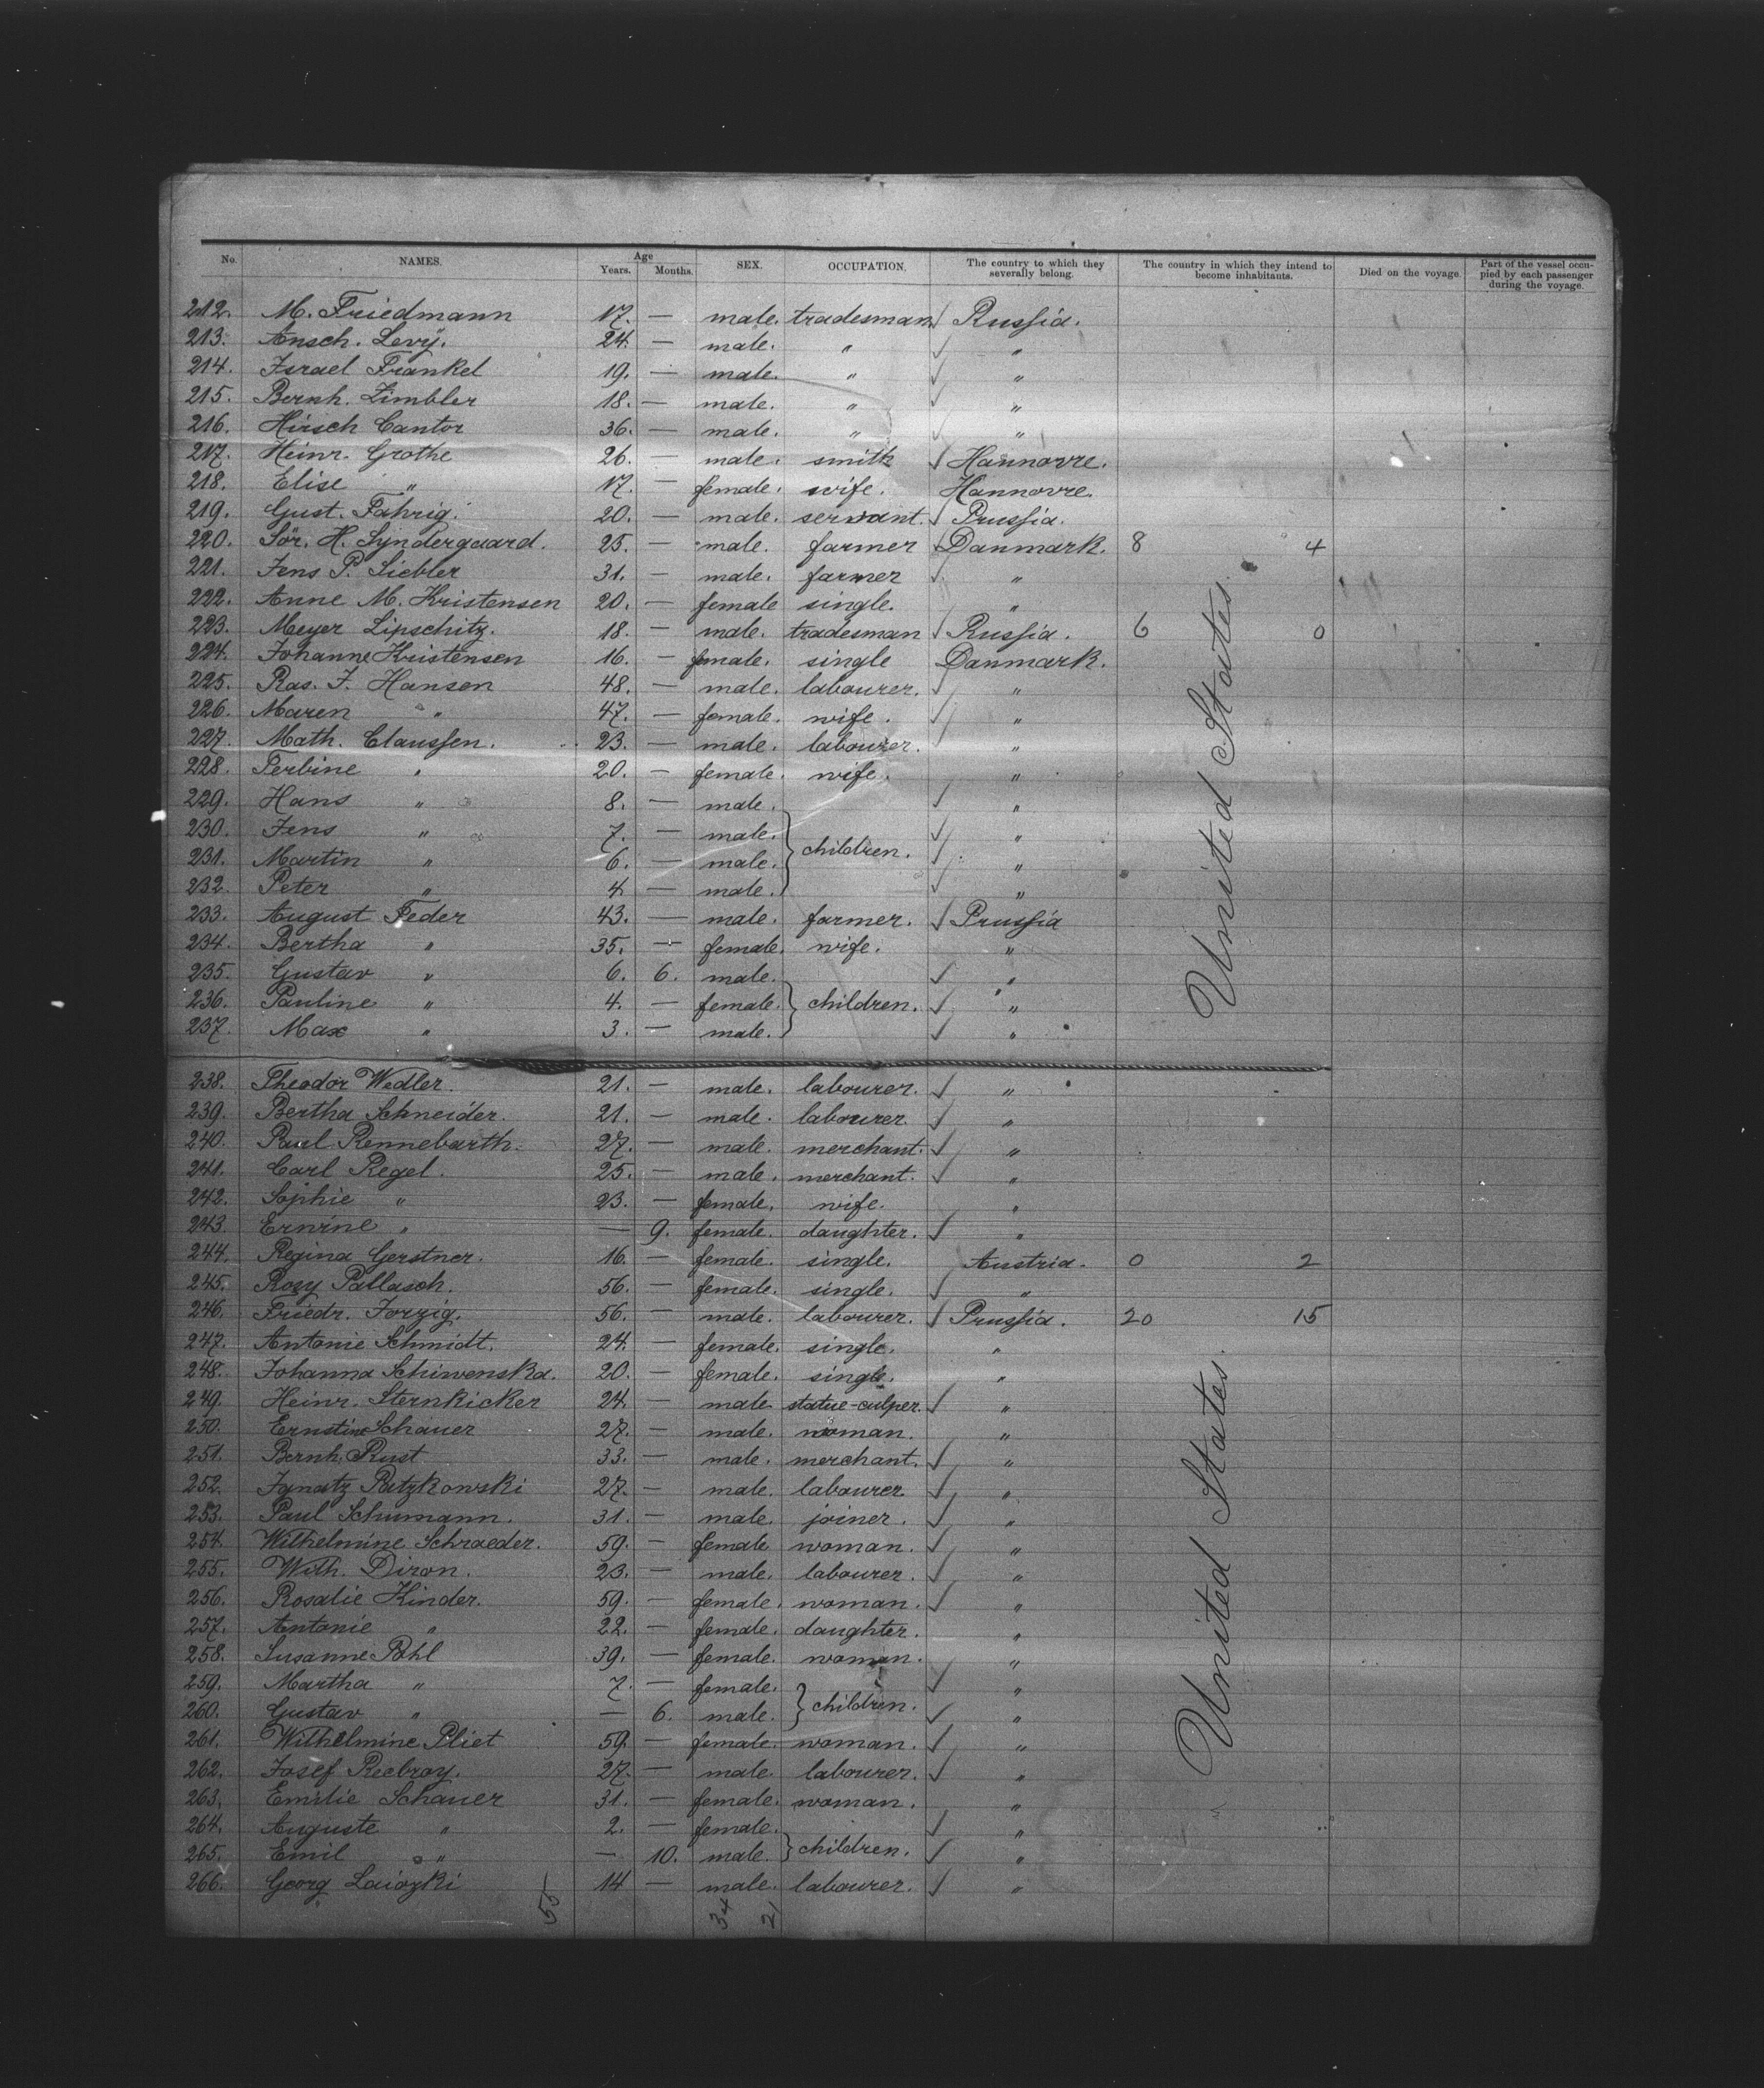 No. NAMES. Age Years. Months. SEX. OCCUPATION. The country to which they severally belong. The country in which they intend to become inhabitants. Died on the voyage. Part of the vessel occupied by each passenger during the voyage.
212. M. Friedmann 17. — male. tradesman Russia.
213. Ansch. Levy. 24. — male. " "
214. Israel Frankel 19. — male. " "
215. Bernh. Zimbler 18. — male. " "
216. Hirsch Cantor 36. — male. " "
217. Heinr. Grothe 26. — male. smith Hannovre.
218. Elise " 17. — female. wife. Hannovre.
219. Gust. Fahrig. 20. — male. servant. Prussia.
220. Sör. H. Syndergaard. 25. — male. farmer Danmark. 8 4
221. Jens P. Siebler 31. — male. farmer "
222. Anne M. Kristensen 20. — female single. "
223. Meyer Lipschitz. 18. — male. tradesman Russia. 6 0
224. Johanne Kristensen 16. — female. single Danmark.
225. Ras. J. Hansen 48. — male. labourer. "
226. Maren " 47. — female. wife. "
227. Math. Claussen. 23. — male. labourer. "
228. Terbine " 20. — female. wife. "
229. Hans " 8. — male. "
230. Jens " 7. — male. "
231. Martin " 6. — male. children. "
232. Peter " 4 — male. "
233. August Feder 43. — male. farmer. Prussia
234. Bertha " 35. — female. wife. "
235. Gustav " 6. 6. male. "
236. Pauline " 4. — female. children. "
237. Max " 3. — male. "
United States.
238. Theodor Wedler. 21. — male. labourer. "
239. Bertha Schneider. 21. — male. labourer. "
240. Paul Rennebarth. 27. — male. merchant. "
241. Carl Regel. 25. — male. merchant. "
242. Sophie " 23. — female. wife. "
243. Erwine " — 9. female. daughter. "
244. Regina Gerstner. 16. — female. single. Austria. 0 2
245. Rozy Pallasch. 56. — female. single. "
246. Friedr. Jorzig. 56. — male. labourer. Prussia. 20 15
247. Antonie Schmidt. 24. — female. single. "
248. Johanna Schiwenska. 20. — female. single. "
249. Heinr. Sternkicker 24 — male statue-culper. "
250. Ernstine Schauer 27. — male. woman. "
251. Bernh. Rust 33. — male. merchant. "
252. Ignatz Patzkowski 27. — male. labourer. "
253. Paul Schumann. 31. — male. joiner. "
254. Wilhelmine Schraeder. 59. — female woman. "
255. Wilh. Diron. 23. — male. labourer. "
256. Rosalie Kinder. 59. — female. woman. "
257. Antonie " 22. — female. daughter. "
258. Susanne Pohl 39. — female. woman. "
259. Martha " 7. — female. "
260. Gustav " — 6. male. children. "
261. Wilhelmine Pliet 59. — female. woman. "
262. Josef Reebray. 27. — male. labourer. "
263. Emilie Schauer 31. — female. woman. "
264. Auguste " 2. — female. "
265. Emil " — 10. male. children. "
266. Georg Laiozki 14 — male. labourer. "
United States.
55 34 21